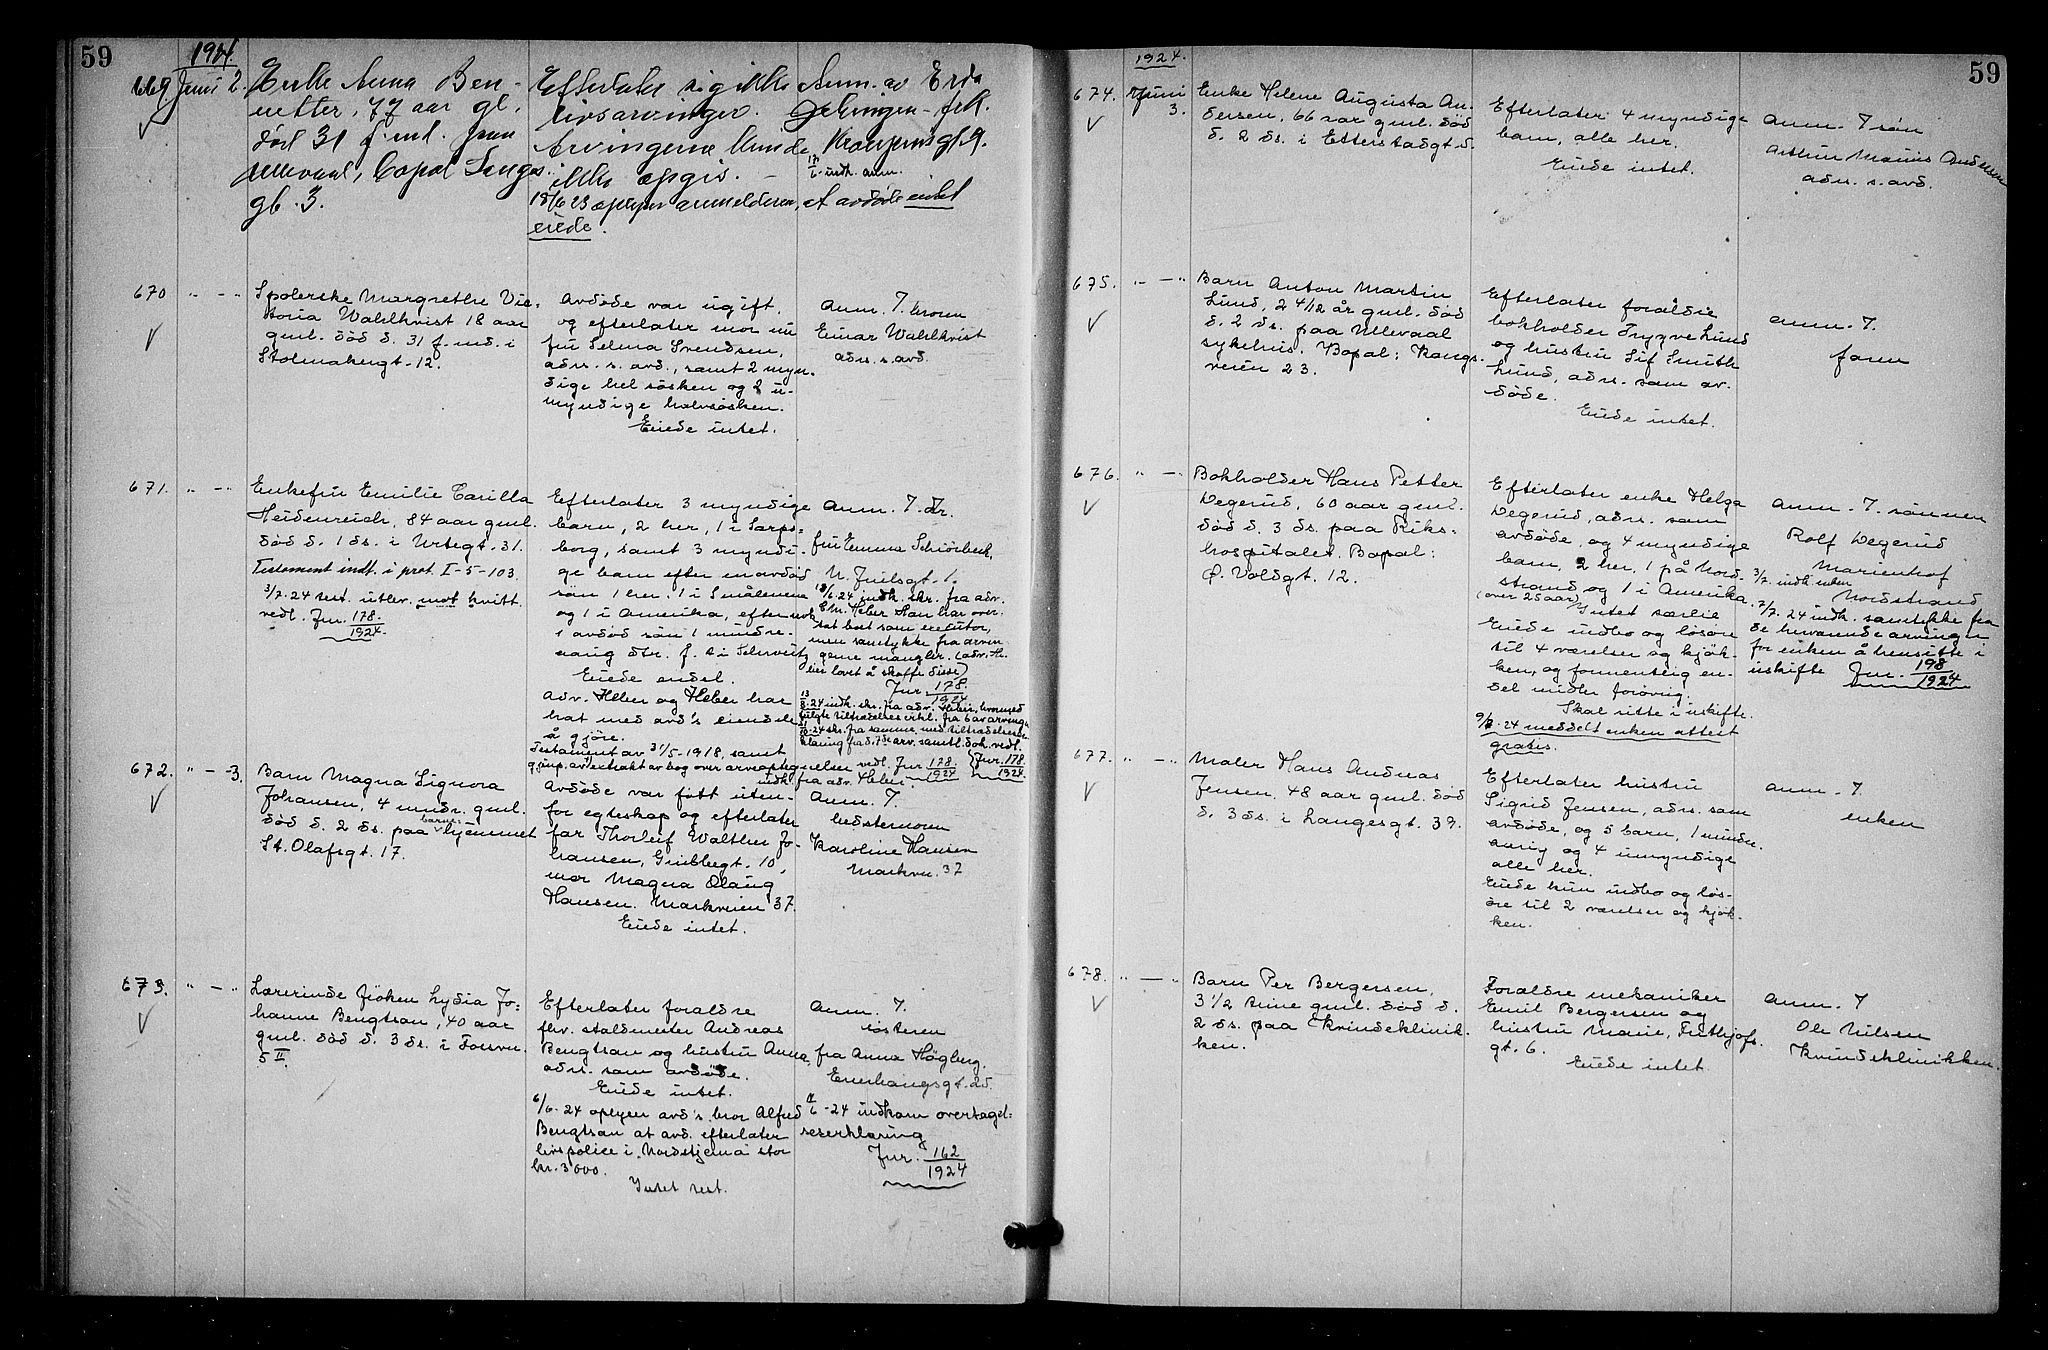 59
1924.
669. Juni 2.
Enke Anna Ben-
netter, 77 aar gl.
død 31 f. md. paa
Ullevaal, bopæl Langes
gt. 3.
Efterlater sig ikke
livsarvinger.
Arvingerne kunde
ikke opgis. -
18/6 23 oplyser anmelderen, at avdøde intet
eiede.
Anm. av
frk.
gt. 9.
indk. anm.
670 " - "
Spolerske Margrethe Vic-
toria Wahlkvist 18 aar
gml. død d. 31 f. md. i
Stolmakergt. 12.
Avdøde var ugift,
og efterlater mor nu
fru Selma Svendsen,
adrs. s. avd., samt 2 myn-
dige helsøsken og 2 u-
myndige halvsøsken.
Eiede intet.
Anm. T. broren
Einar Wahlkvist
adrs. s. avd.
671. " - "
Enkefru Emilie Carilla
Heidenreich, 84 aar gml.
død d. 1 ds. i Urtegt. 31.
Testament indt. i prot. I-5-103.
3/7. 24 test. utlev. mot kvitt.
vedl. Jnr. 178/1924.
Efterlater 3 myndige
barn, 2 her, 1 i Sarps-
borg, samt 3 myndi-
ge barn efter en avdød
søn 1 her, 1 i Smålenene
og 1 i Amerika, efter nok
1 avdød søn 1 mindre-
aarig dtr. f. t. i Schweitz
Eiede endel.
Adv. Heber og Heber har
hat med avd's eiendele
å gjøre.
Testament av 31/5-1918, samt
gjenp. av extrakt av bog over arveoptegnelser vedl. Jnr. 178/1924
indk. fra adv. Heber.
Anm. T. dr.
fru Emma Schiørbeck,
N. Juelsgt. 1.
18/6. 24 indk. skr. fra adv.
Chr. Heber. Han har over-
tat boet som executor,
men samtykke fra arvin-
gerne mangler. (adv. He-
ber lovet å skaffe disse)
Jnr. 178/1924
24 indk. skr. fra adv. Heber, hvormed
fulgte tiltrædelseserkl. fra 6 av arvinger
24 skr. fra samme, med tiltrædelseser-
klæring fra d. 7de arv. samtl. dok. vedl.
Jnr. 178/1924
672. " - 3.
Barn Magna Signora
Johansen, 4 mndr. gml.
død d. 2 ds. paa barnehjemmet
St. Olafsgt. 17.
Avdøde var født uten-
for egteskap og efterlater
far Thorleif Walther Jo-
hansen, Grubbegt. 10,
mor Magna Olaug
Hansen. Markveien 37.
Eiede intet.
Anm. T.
bedstemoren
Karoline Hansen
Markvn. 37
673. " - "
Lærerinde frøken Lydia Jo-
hanne Bengtson, 40 aar
gml. død d. 3 ds. i Fossvn.
5 II.
Efterlater foraldre
fhv. staldmester Andreas
Bengtson og hustru Anna,
adrs. som avdøde.
Eiede intet.
6/6. 24 oplyser avd's bror Alfred
Bengtson at avd. efterlater
livspolice i "Nordstjerna" stor
kr. 3000.
Intet test.
Anm. T.
søsteren
fra Anna Högberg,
Enerhaugsgt. 20.
6-24 indkom overtagel-
seserklæring
Jnr. 162/1924
59
1924.
674. Juni 3.
Enke Helene Augusta An-
dersen, 66 aar gml. død
d. 2 ds. i Etterstadgt. 5.
Efterlater 4 myndige
barn, alle her.
Eiede intet.
Anm. T søn
Arthur Andersen
adrs. s. avd.
675. " - "
Barn Anton Martin
Lund, 2 4/12 år gml. død
d. 2 ds. paa Ullevaal
sykehus. Bopæl: Vangs-
veien 23.
Efterlater foraldre
bokholder Trygve Lund
og hustru Sif Smith
Lund, adrs. som av-
døde.
Eiede intet.
Anm. T.
faren
676. " - "
Bokholder Hans Petter
Wegerud, 60 aar gml.
død d. 3 ds. paa Riks-
hospitalet. Bopæl:
Ø. Voldgt. 12.
Efterlater enke Helga
Wegerud, adrs. som
avdøde, og 4 myndige
barn, 2 her, 1 på Nord-
strand og 1 i Amerika
(over 25 aar) Intet særeie
Eiede indbo og løsøre
til 4 værelser og kjøk-
ken, og formentlig en-
del midler forøvrig.
Skal sitte i uskifte.
9/7. 24 meddelt enken attest
gratis.
Anm. T. sønnen
Rolf Wegerud
Marienhof
Nordstrand
3/7. indk. enken
7/7. 24 indk. samtykke fra
de herværende arvinger
for enken å hensitte i
uskifte Jnr. 198/1924
677. " - "
Maler Hans Andreas
Jensen, 48 aar gml. død
d. 3 ds. i Langesgt. 39.
Efterlater hustru
Sigrid Jensen, adrs. som
avdøde, og 5 barn, 1 mindre-
aarig og 4 umyndige
alle her.
Eiede kun indbo og løs-
øre til 2 værelser og kjøk-
ken.
Anm. T.
enken
678. " - "
Barn Per Bergersen,
3 1/2 time gml. død d.
2 ds. paa Kvindeklinik-
ken.
Foraldre mekaniker
Emil Bergersen og
hustru Marie, Frithjofs-
gt. 6.
Eiede intet.
Anm. T
Ole Nilsen
Kvindeklinikken.